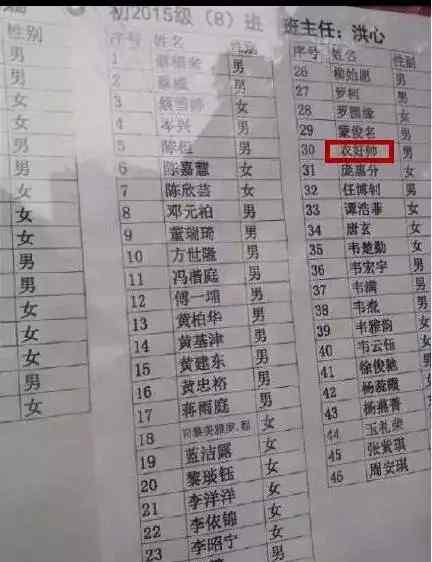 性别
男
男
女
女
男
男
女
女
女
男
男
女
女
女
男
女
初2015级（8）班 班主任：洪心
序号 姓名 性别
1 男
2 男
3 女
4 岑兴 男
5 男
6 陈嘉慧 女
7 陈欣芸 女
8 邓元柏 男
9 董瑞琦 男
10 方世 男
11 冯楷庭 男
12 傅一 男
13 黄柏华 男
14 黄基沣 男
15 黄建东 男
16 黄忠裕 男
17 蒋雨庭 男
18 女
19 蓝洁露 女
20 黎琰钰 女
21 李洋洋 女
22 李依锦 女
23 李昭宁 女
序号 姓名 性别
26 男
27 罗柯 男
28 女
29 蒙俊名 男
30 农好帅 男
31 庞惠分 女
32 任博钊 男
33 谭浩菲 女
34 唐玄 女
35 韦楚勤 女
36 韦宏宇 男
37 韦满 男
38 韦 男
39 韦雅韵 女
40 韦云钰 女
41 徐俊驰 男
42 杨蕊霞 女
43 杨燕菁 女
44 玉礼荣 男
45 张紫琪 女
46 周安琪 女